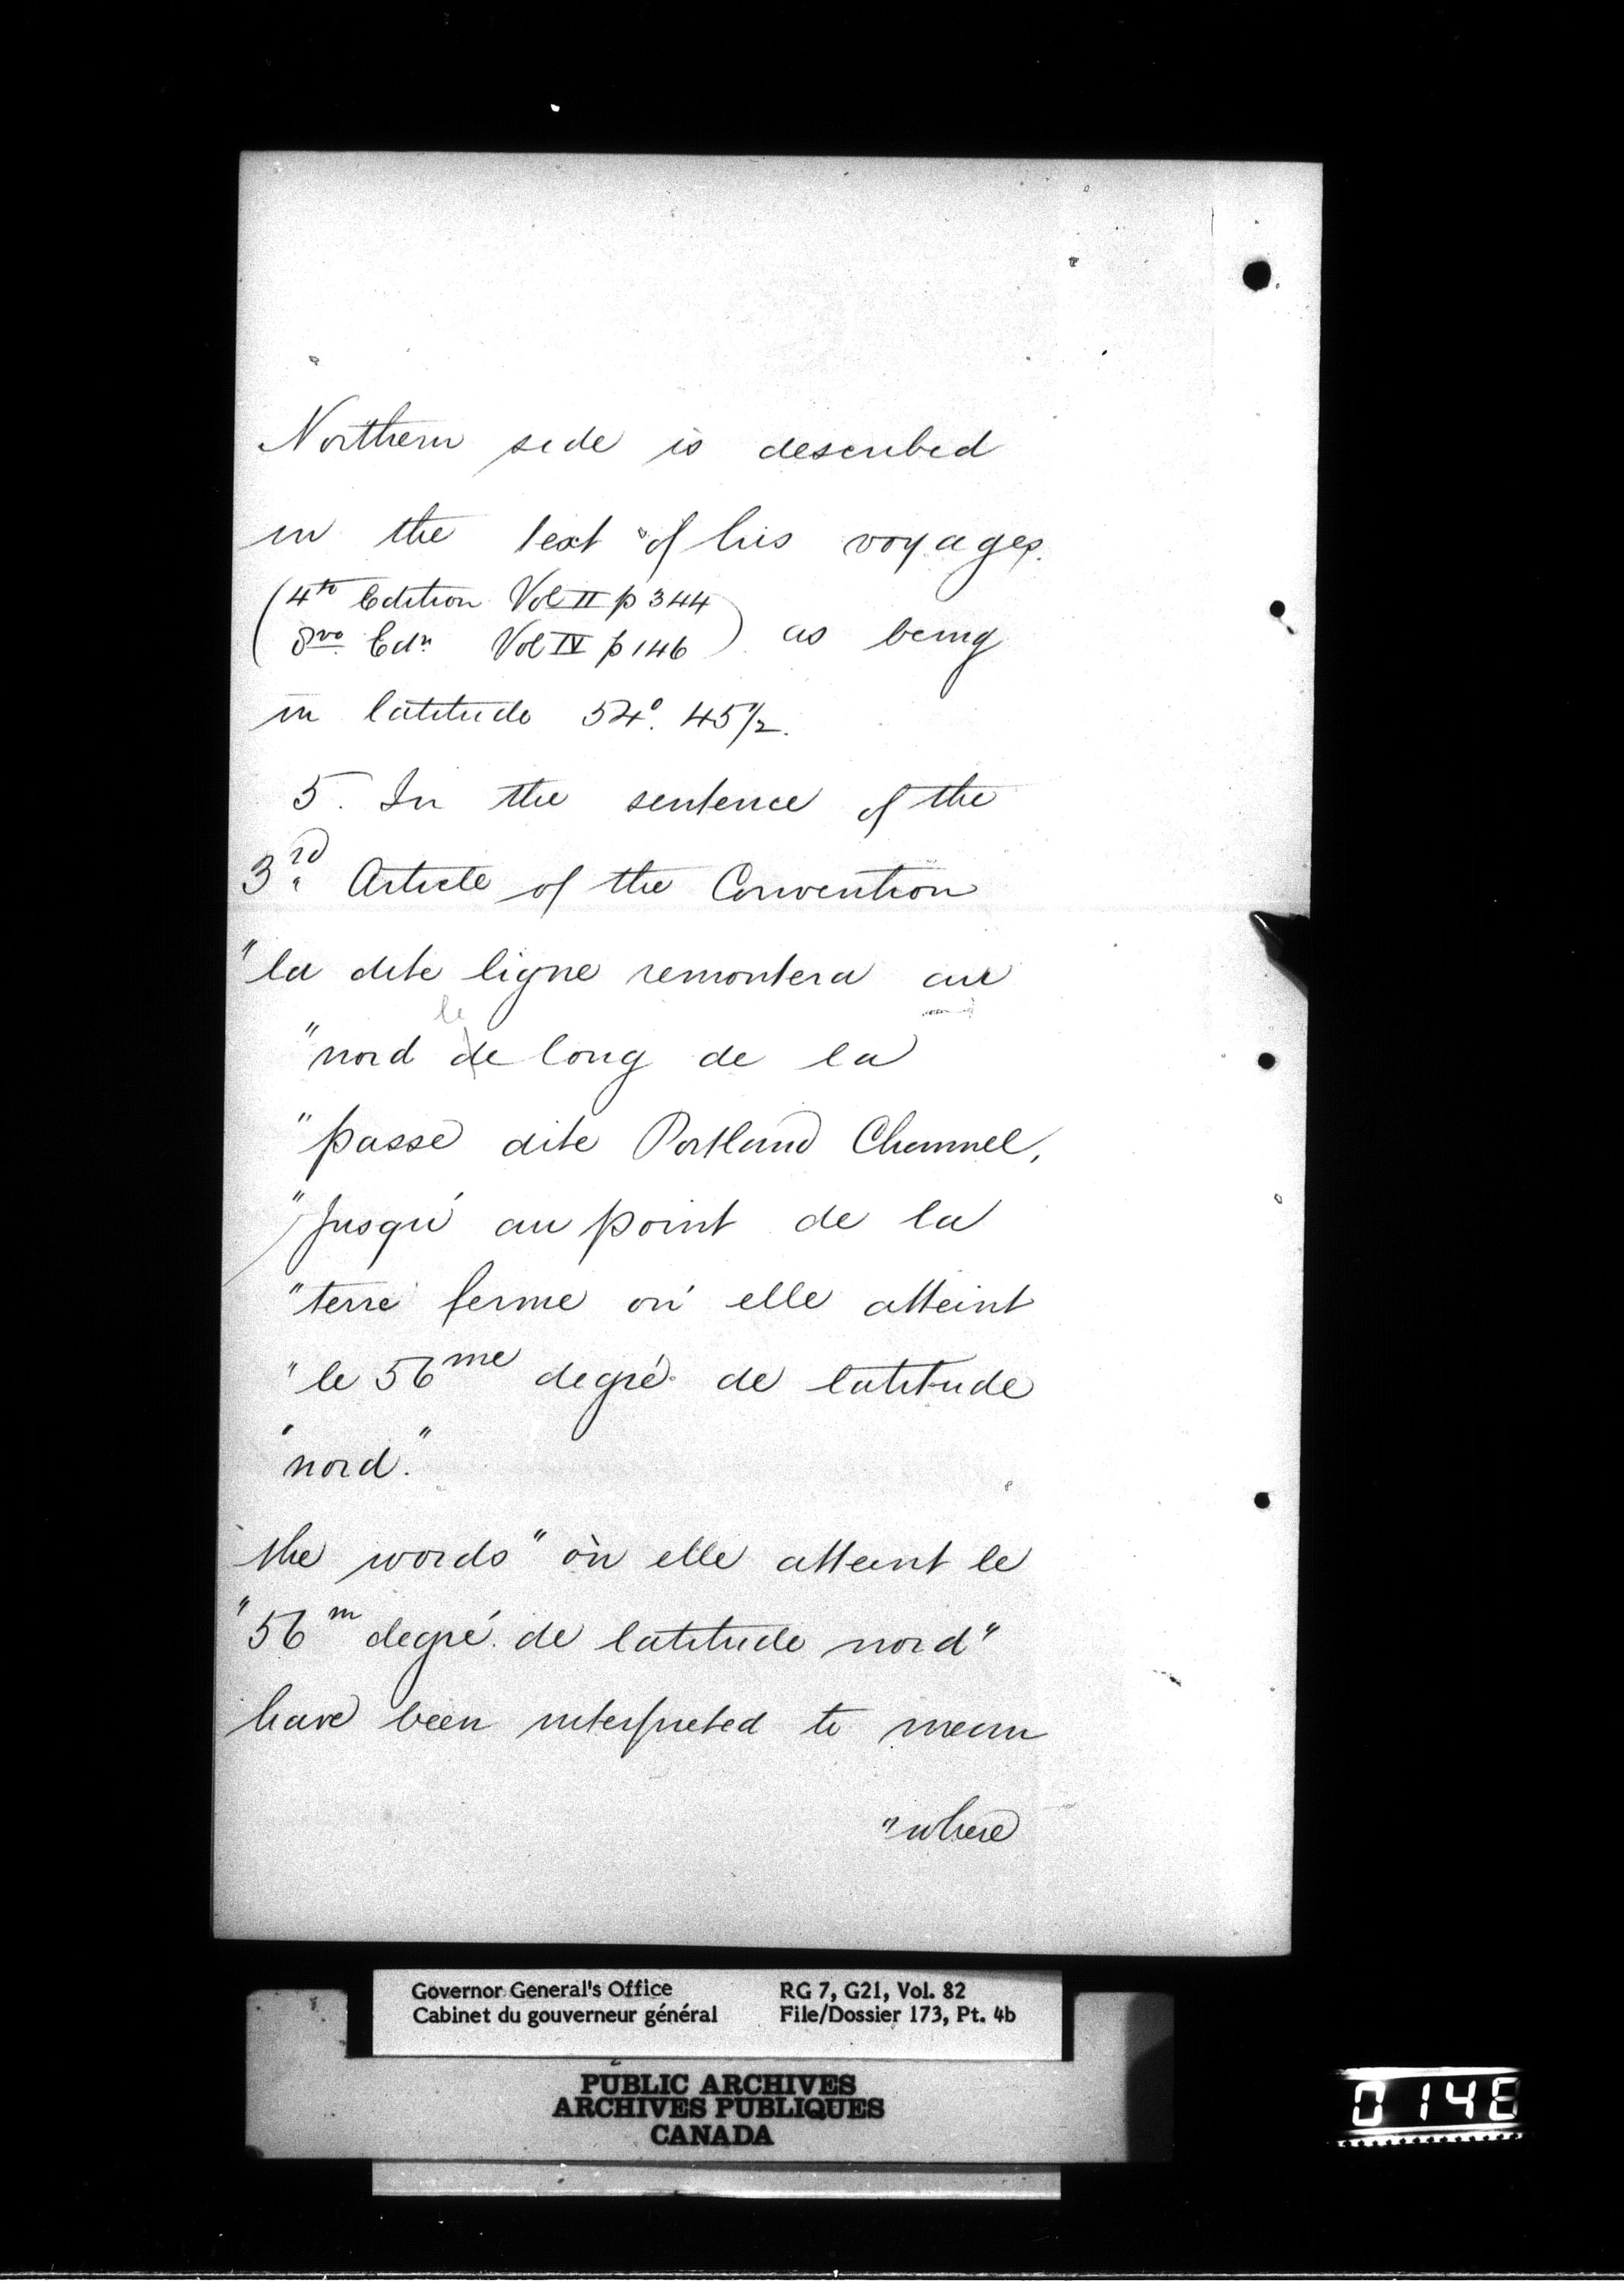 Northern side is described
in the text of his voyages.
(4to Edition Vol II p 344
8vo Edn Vol IV p 146) as being
in latitude 54°. 45½.
5. In the sentence of the
3rd Article of the Convention
"la dite ligne remontera au
le
"nord de long de la
"passe dite Portland Channel,
"jusqu'au point de la
"terre ferme où elle atteint
"le 56me degré de latitude
"nord."
the words "où elle atteint le
"56m degré de latitude nord"
have been interpreted to mean
"where
Governor General's Office RG 7, G21, Vol. 82
Cabinet du gouverneur général File/Dossier 173, Pt. 4b
PUBLIC ARCHIVES
ARCHIVES PUBLIQUES
CANADA